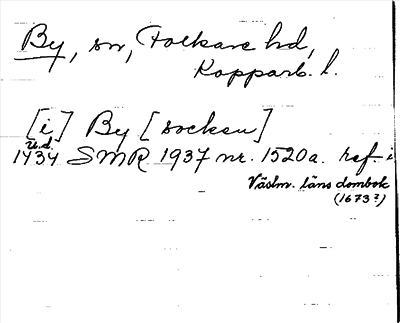 By, sn, Folkare hd,
Kopparb. l.
[i] By [socken]
u.d.
1434 SMR 1937 nr. 1520a. ref i
Västm. läns dombok
(1673?)